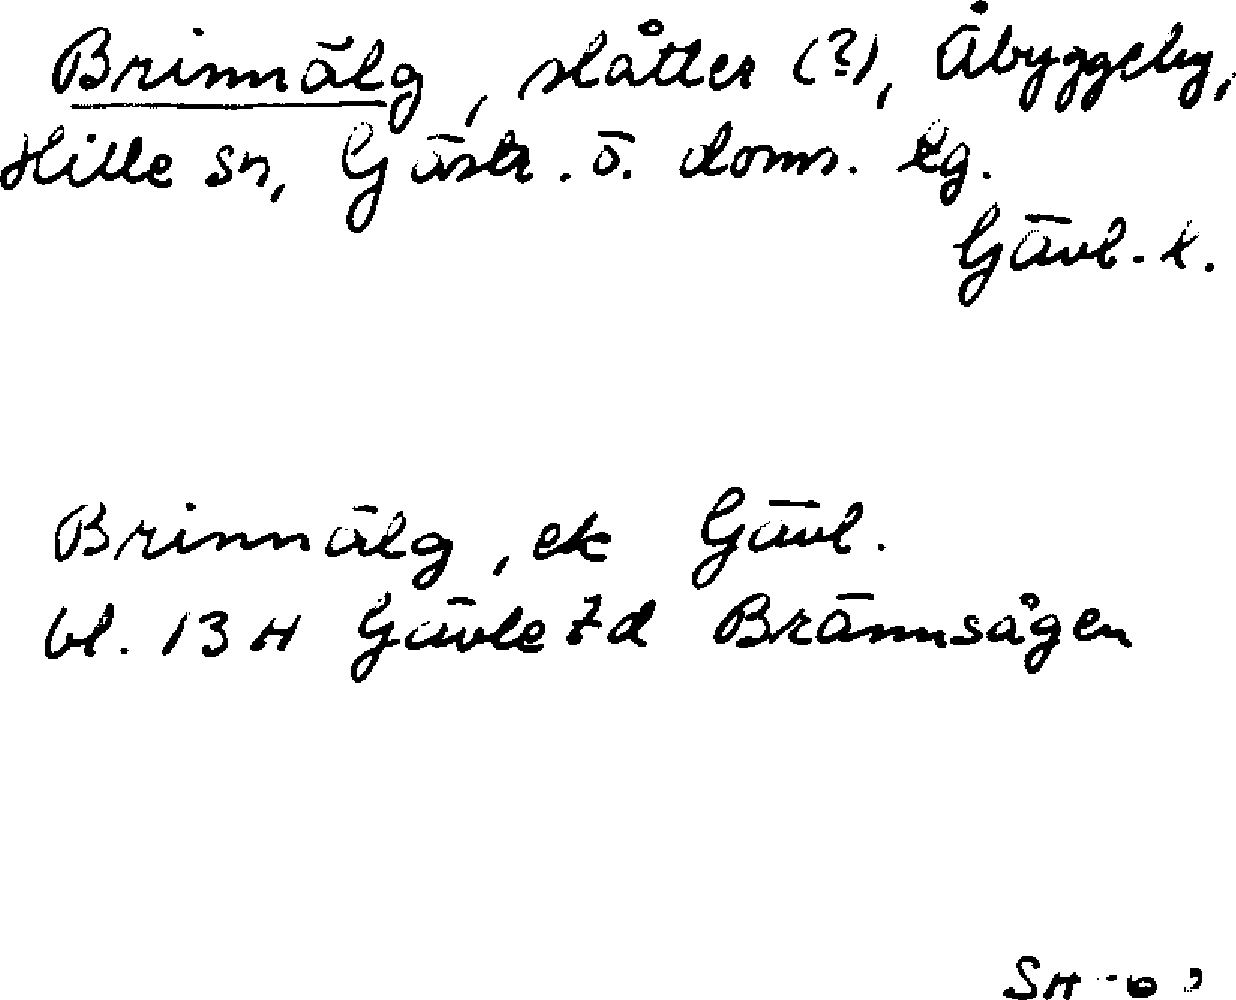 Brinnälg, slåtter (?), Åbyggeby,
Hille sn, Gästr. ö. doms. tg.
Gävl. l.
Brinnälg, ek Gävl.
bl. 13 H Gävle 7 d Brännsågen
SH